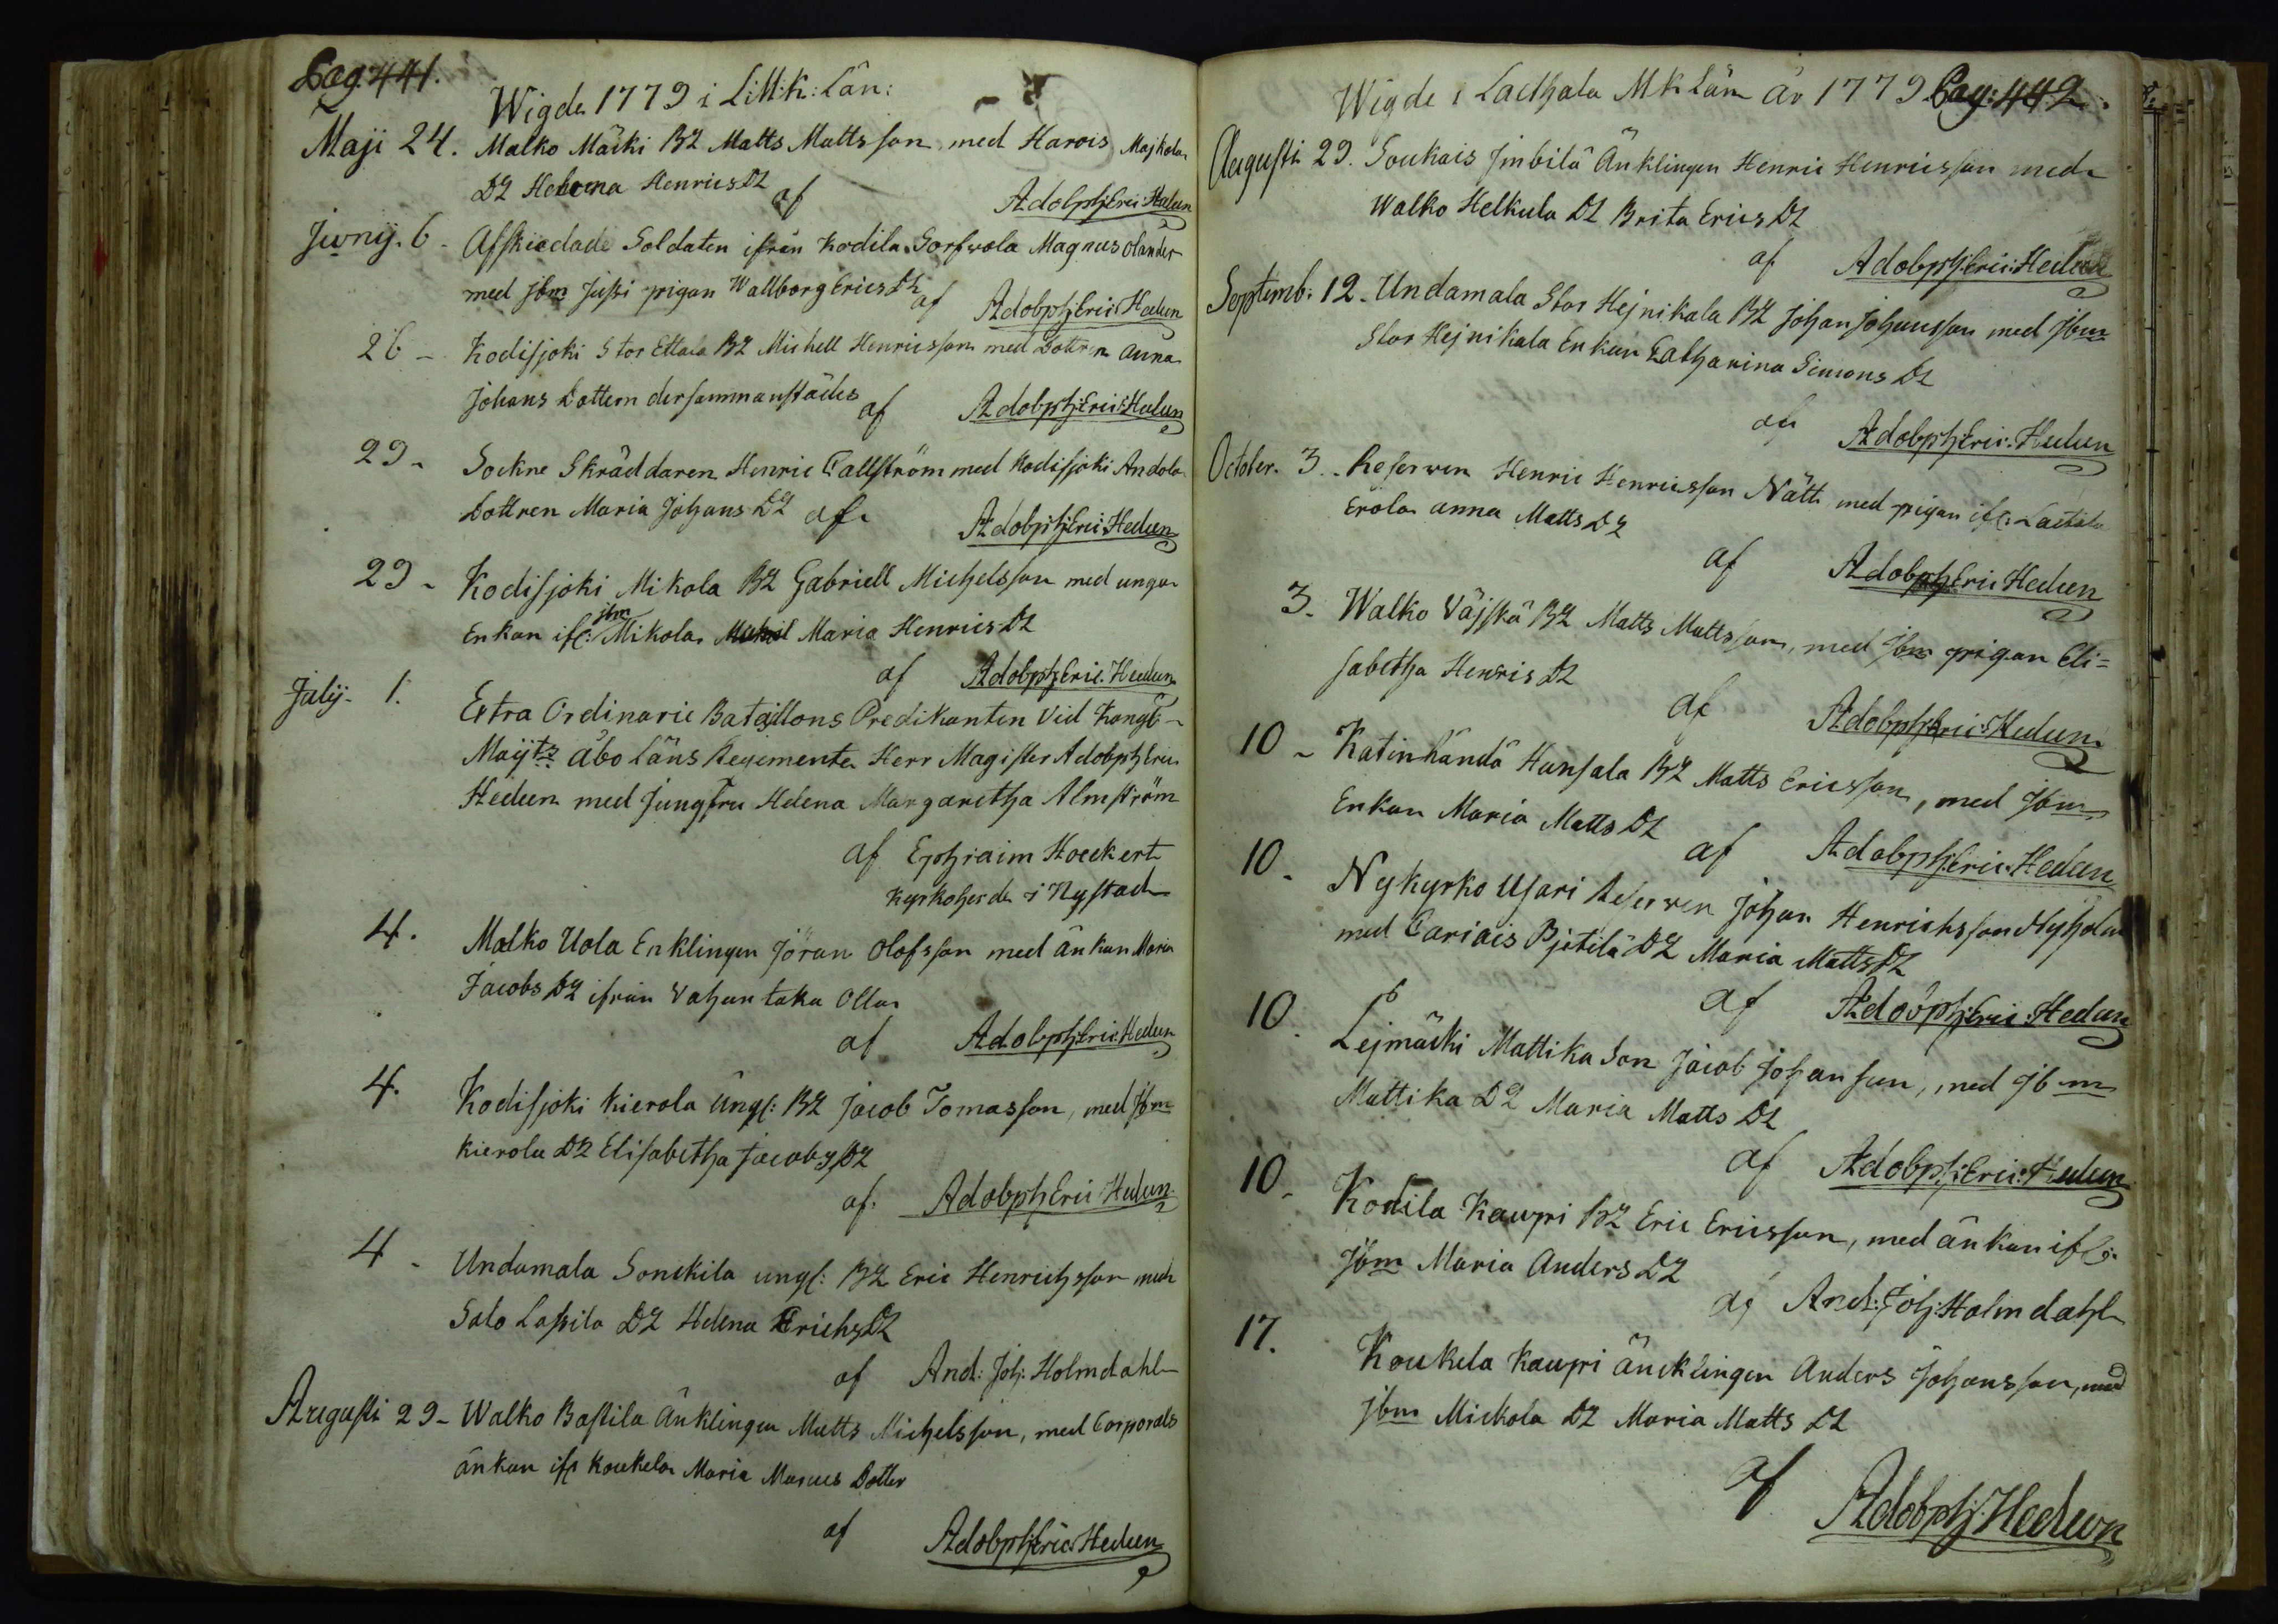 Pag: 441.
Wigde 1779 i L: M: K: Län:
Maji 24. Malko Mäcki BZ Matts Mattsson med Harois Majkola
DZ Helena Henrics DZ af Adolph Eric: Hedeen
Junij. 6 - Afskiedade Soldaten ifrån Kodila Sorfwola Magnus Olander
med jbm Jussi pigan Wallborg Erics DZ af Adolph Eric: Hedeen
26 - Kodisjoki Stor Ettala BZ Michell Henricsson med Dottren Anna
Johans Dottern dersammanstädes af Adolph: Eric: Hedeen
29 - Sockne Skräddaren Henric Tallström med Kodisjoki Andola
Dottren Maria Johans DZ af Adolph: Eric: Hedeen
29 - Kodisjoki Mikola BZ Gabriell Michelsson med unga
Enkan ifr: jbm Mikola Maria Henrics DZ
af Adolph Eric: Hedeen
Julij - 1. Extra Ordinarie Bataillons Predikanten Vid Kongl
Maijtz Åbo Läns Regemente Herr Magister Adolph Eric
Hedeen med Jungfru Helena Margaretha Almström
af Ephraim Hoeckert
Kyrkoherde i Nystad
4. Malko Uola Enklingen Jöran Olofsson med änkan Maria
Jacobs DZ ifrån Vahantaka Olla
af Adolph Eric: Hedeen
4. Kodisjoki Kierola Ungk: BZ Jacob Tomasson, med Jbm
Kierola DZ Elisabetha Jacobs DZ
af. Adolph Eric Hedeen
4 - Undamala Sonckila ungk: BZ Eric Henrichsson med
Salo Lassila DZ Helena Erichs DZ
af And: Joh: Holmdahl
Augusti 29 - Walko Bastila Änklingen Matts Michelsson, med Corporals
änkan ifr Koukela Maria Marcus Dotter
af Adolph: Eric: Hedeen
Wigde i Laethala M K Län år 1779 Pag: 442.
Augusti 29. Soukais Imbilä Änklingen Henric Henricsson med
Walko Helkula DZ Brita Erics DZ
af Adolph: Eric: Hedeen
Septemb: 12. Undamala Stor Hejnikala BZ Johan Johansson med Jbm
Stor Hejnikala Enkan Catharina Simons DZ
af Adolph: Eric: Hedeen
October. 3. Reserwen Henric Henricsson Nätt med pigan ifr: Laitila
Erola Anna Matts DZ
af Adolph: Eric Hedeen
3. Walko Väjskä BZ Matts Mattsson, med Jbm pigan Eli=
sabetha Henris DZ
af Adolph Eric: Hedeen
10 - Katinhändä Hansala BZ Matts Ericsson, med Jbm
Enkan Maria Matts DZ
af Adolph: Eric: Hedeen
10 - Nykyrko Usari Reserwen Johan Henrichsson Nyholm
med Cariais Pjetilä DZ Maria Matts DZ
af Adolph: Eric: Hedeen
10. Lejmäcki Mattika Son Jacob Johansson, med Jbm
Mattika DZ Maria Matts DZ
af Adolph: Eric: Hedeen
10. Kodila Kaupri BZ Eric Ericsson, med änkan ifr:
Jbm Maria Anders DZ
af And: Joh: Holmdahl
17. Koukela Kaupri äncklingen Anders Johansson, med
jbm Mickola DZ Maria Matts DZ
af Adolph: Hedeen